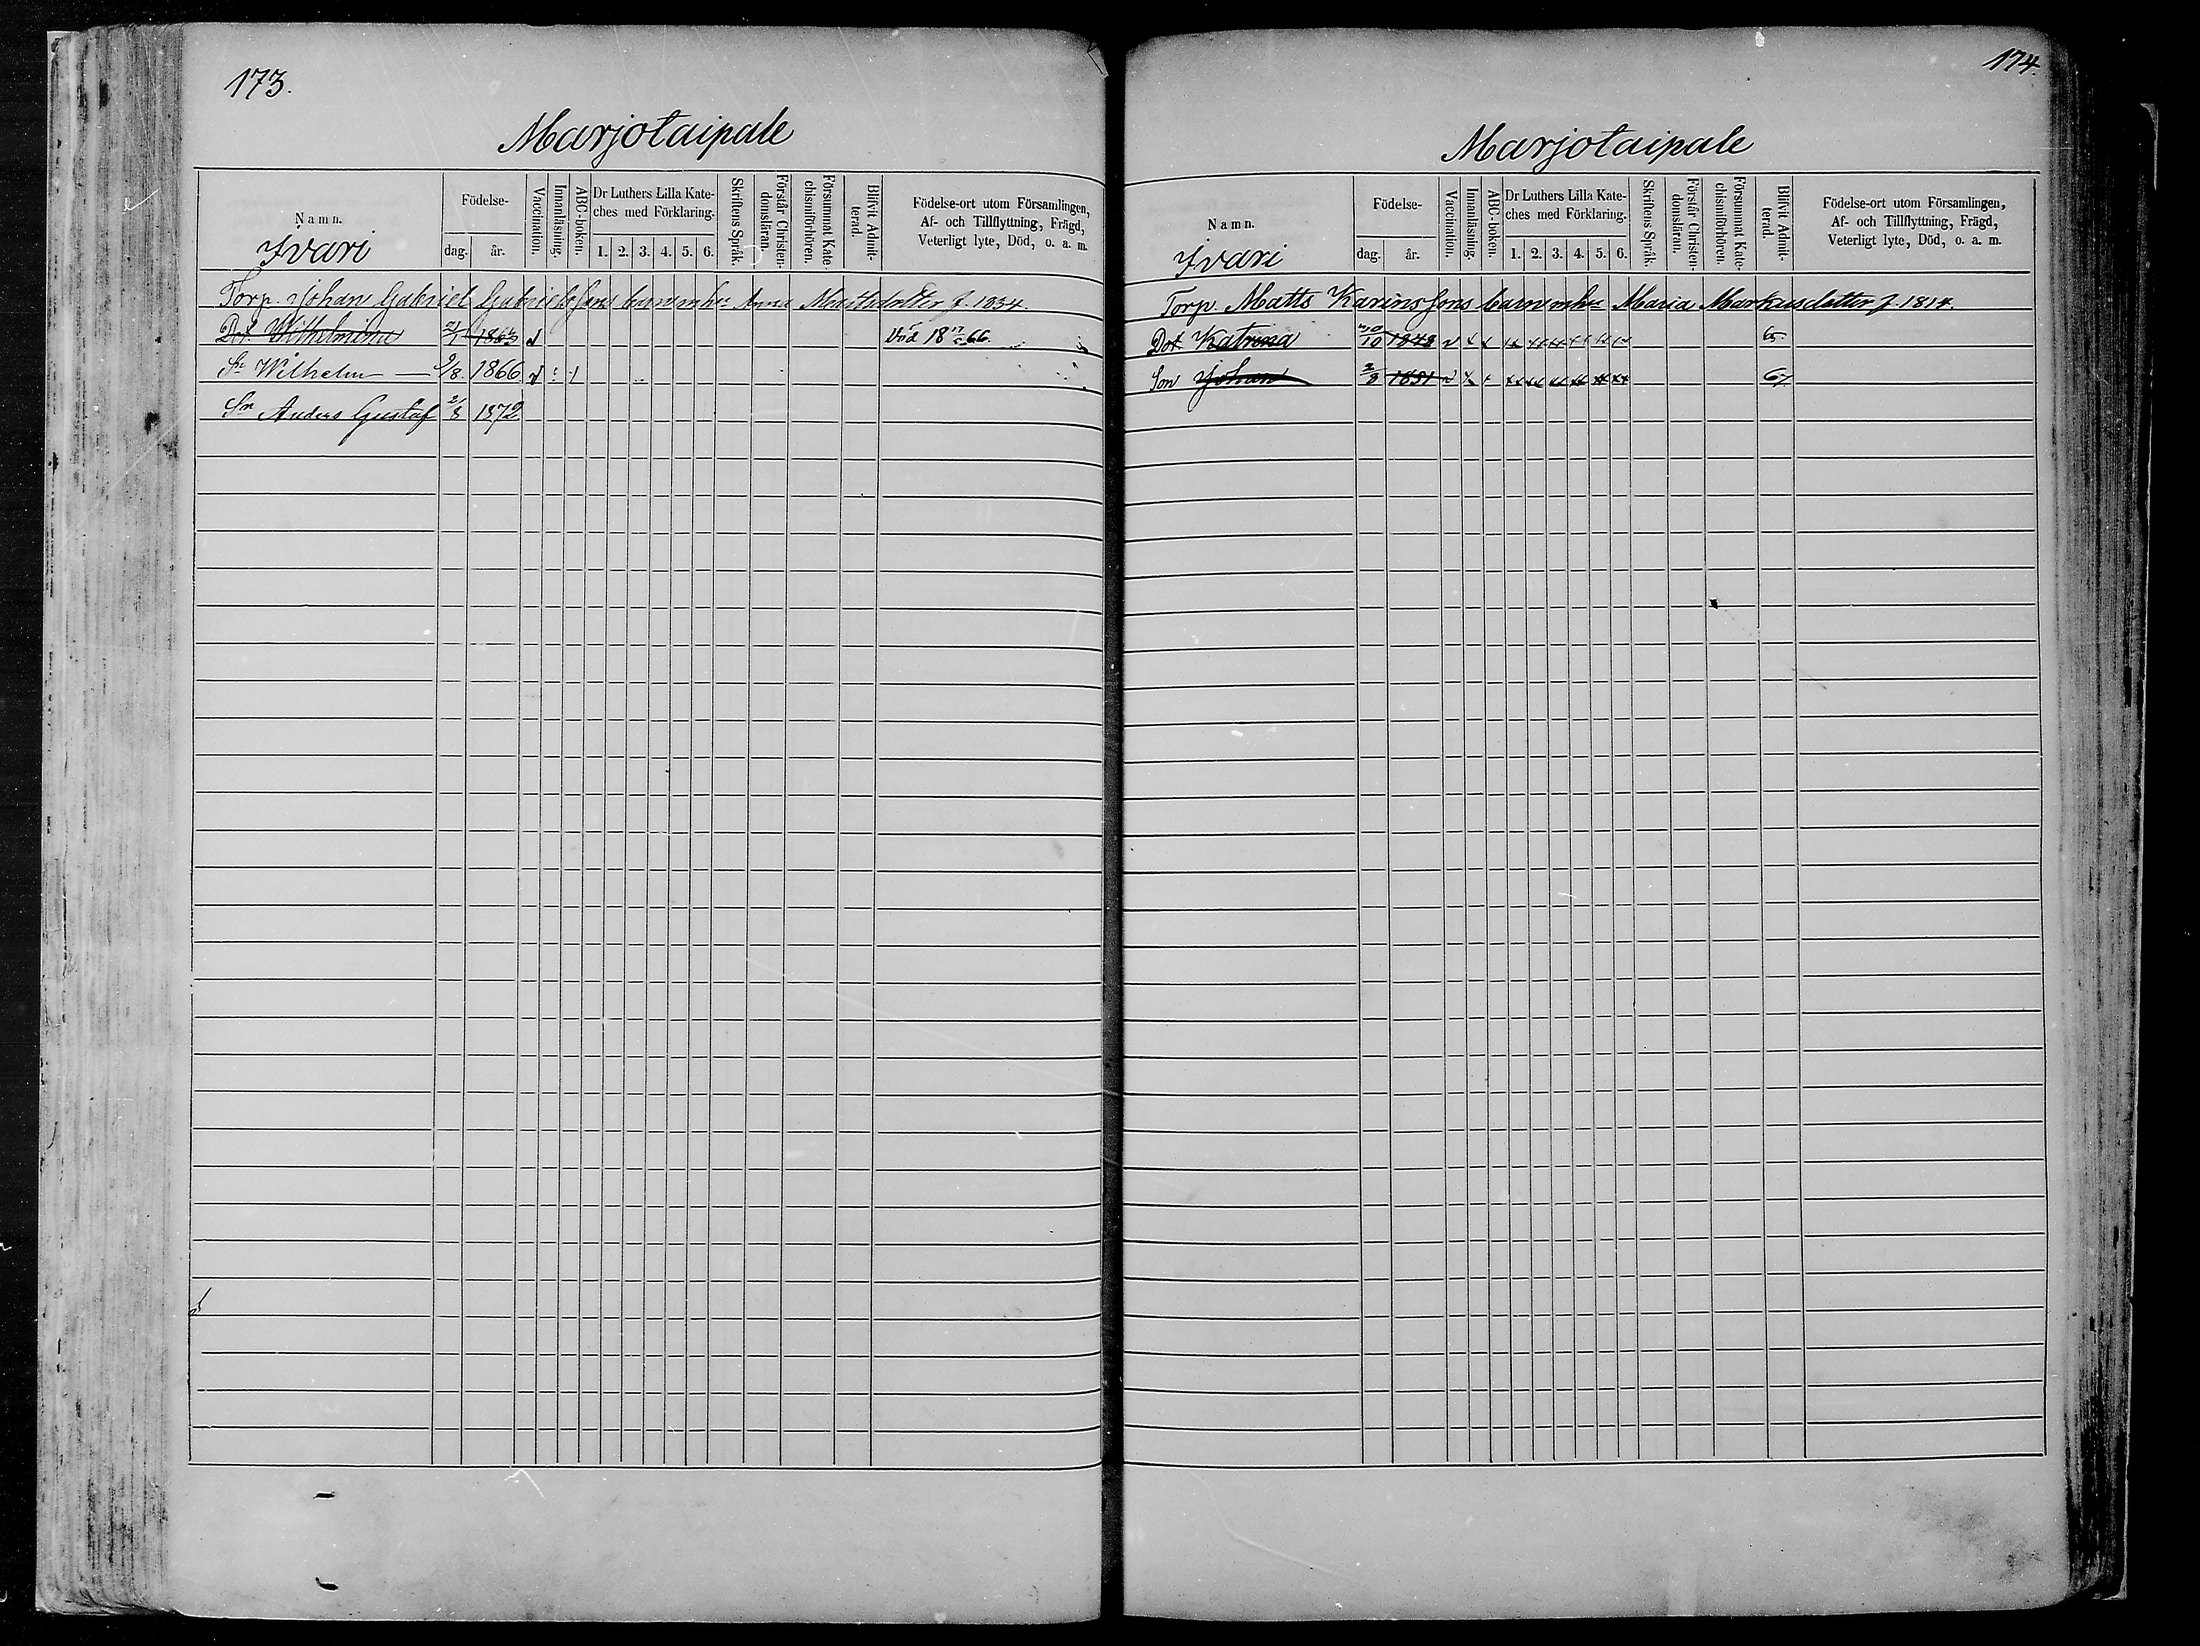 173.
Marjotaipale
Namn. Födelse- dag. år. Vaccination. Innanläsning. ABC-boken. Dr Luthers Lilla Kateches med Förklaring. 1. 2. 3. 4. 5. 6. Skriftens Språk. Förstår Christendomsläran. Försummat Katechismiförhören. Blifvit Admitterad. Födelse-ort utom Församlingen, Af- och Tillflyttning, Frägd, Veterligt lyte, Död, o. a. m.
Ivari
Torp. Johan Gabriel Gabrielssons barn m hu Anna Mattsdotter f. 1834.
Dot. Wilhelmina 1863 Död 18 66.
Sn Wilhelm 2/8 1866
Sn Anders Gustaf 2/8 1872
174.
Marjotaipale
Namn. Födelse- dag. år. Vaccination. Innanläsning. ABC-boken. Dr Luthers Lilla Kateches med Förklaring. 1. 2. 3. 4. 5. 6. Skriftens Språk. Förstår Christendomsläran. Försummat Katechismiförhören. Blifvit Admitterad. Födelse-ort utom Församlingen, Af- och Tillflyttning, Frägd, Veterligt lyte, Död, o. a. m.
Ivari
Torp. Matts Karinssons barn m hu Maria Markusdotter f. 1814.
Dot Katrina 1848 65.
Son Johan 2/8 1851 67